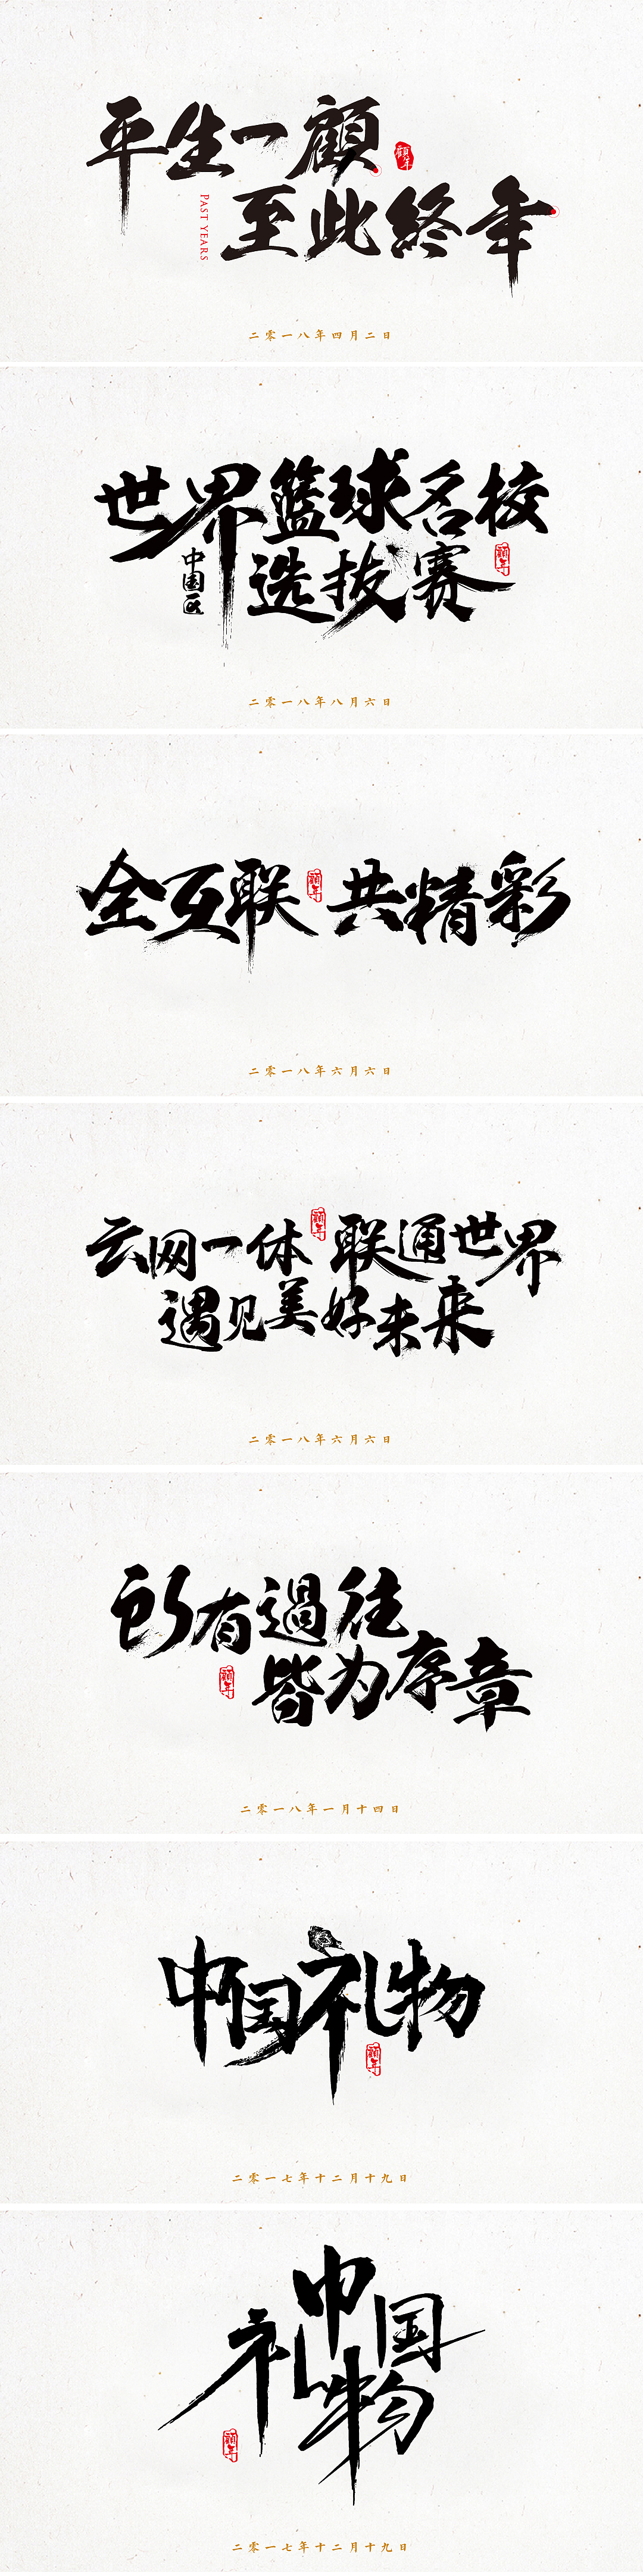 平生一顧
顧年
PAST YEARS
至此終年
二零一八年四月二日
世界籃球名校
中国区
选拔赛
顧年
二零一八年八月六日
全互联 共精彩
顧年
二零一八年六月六日
云网一体 联通世界
顧年
遇见美好未来
二零一八年六月六日
所有過往
皆为序章
顧年
二零一八年一月十四日
中国礼物
顧年
二零一七年十二月十九日
中国
礼物
顧年
二零一七年十二月十九日